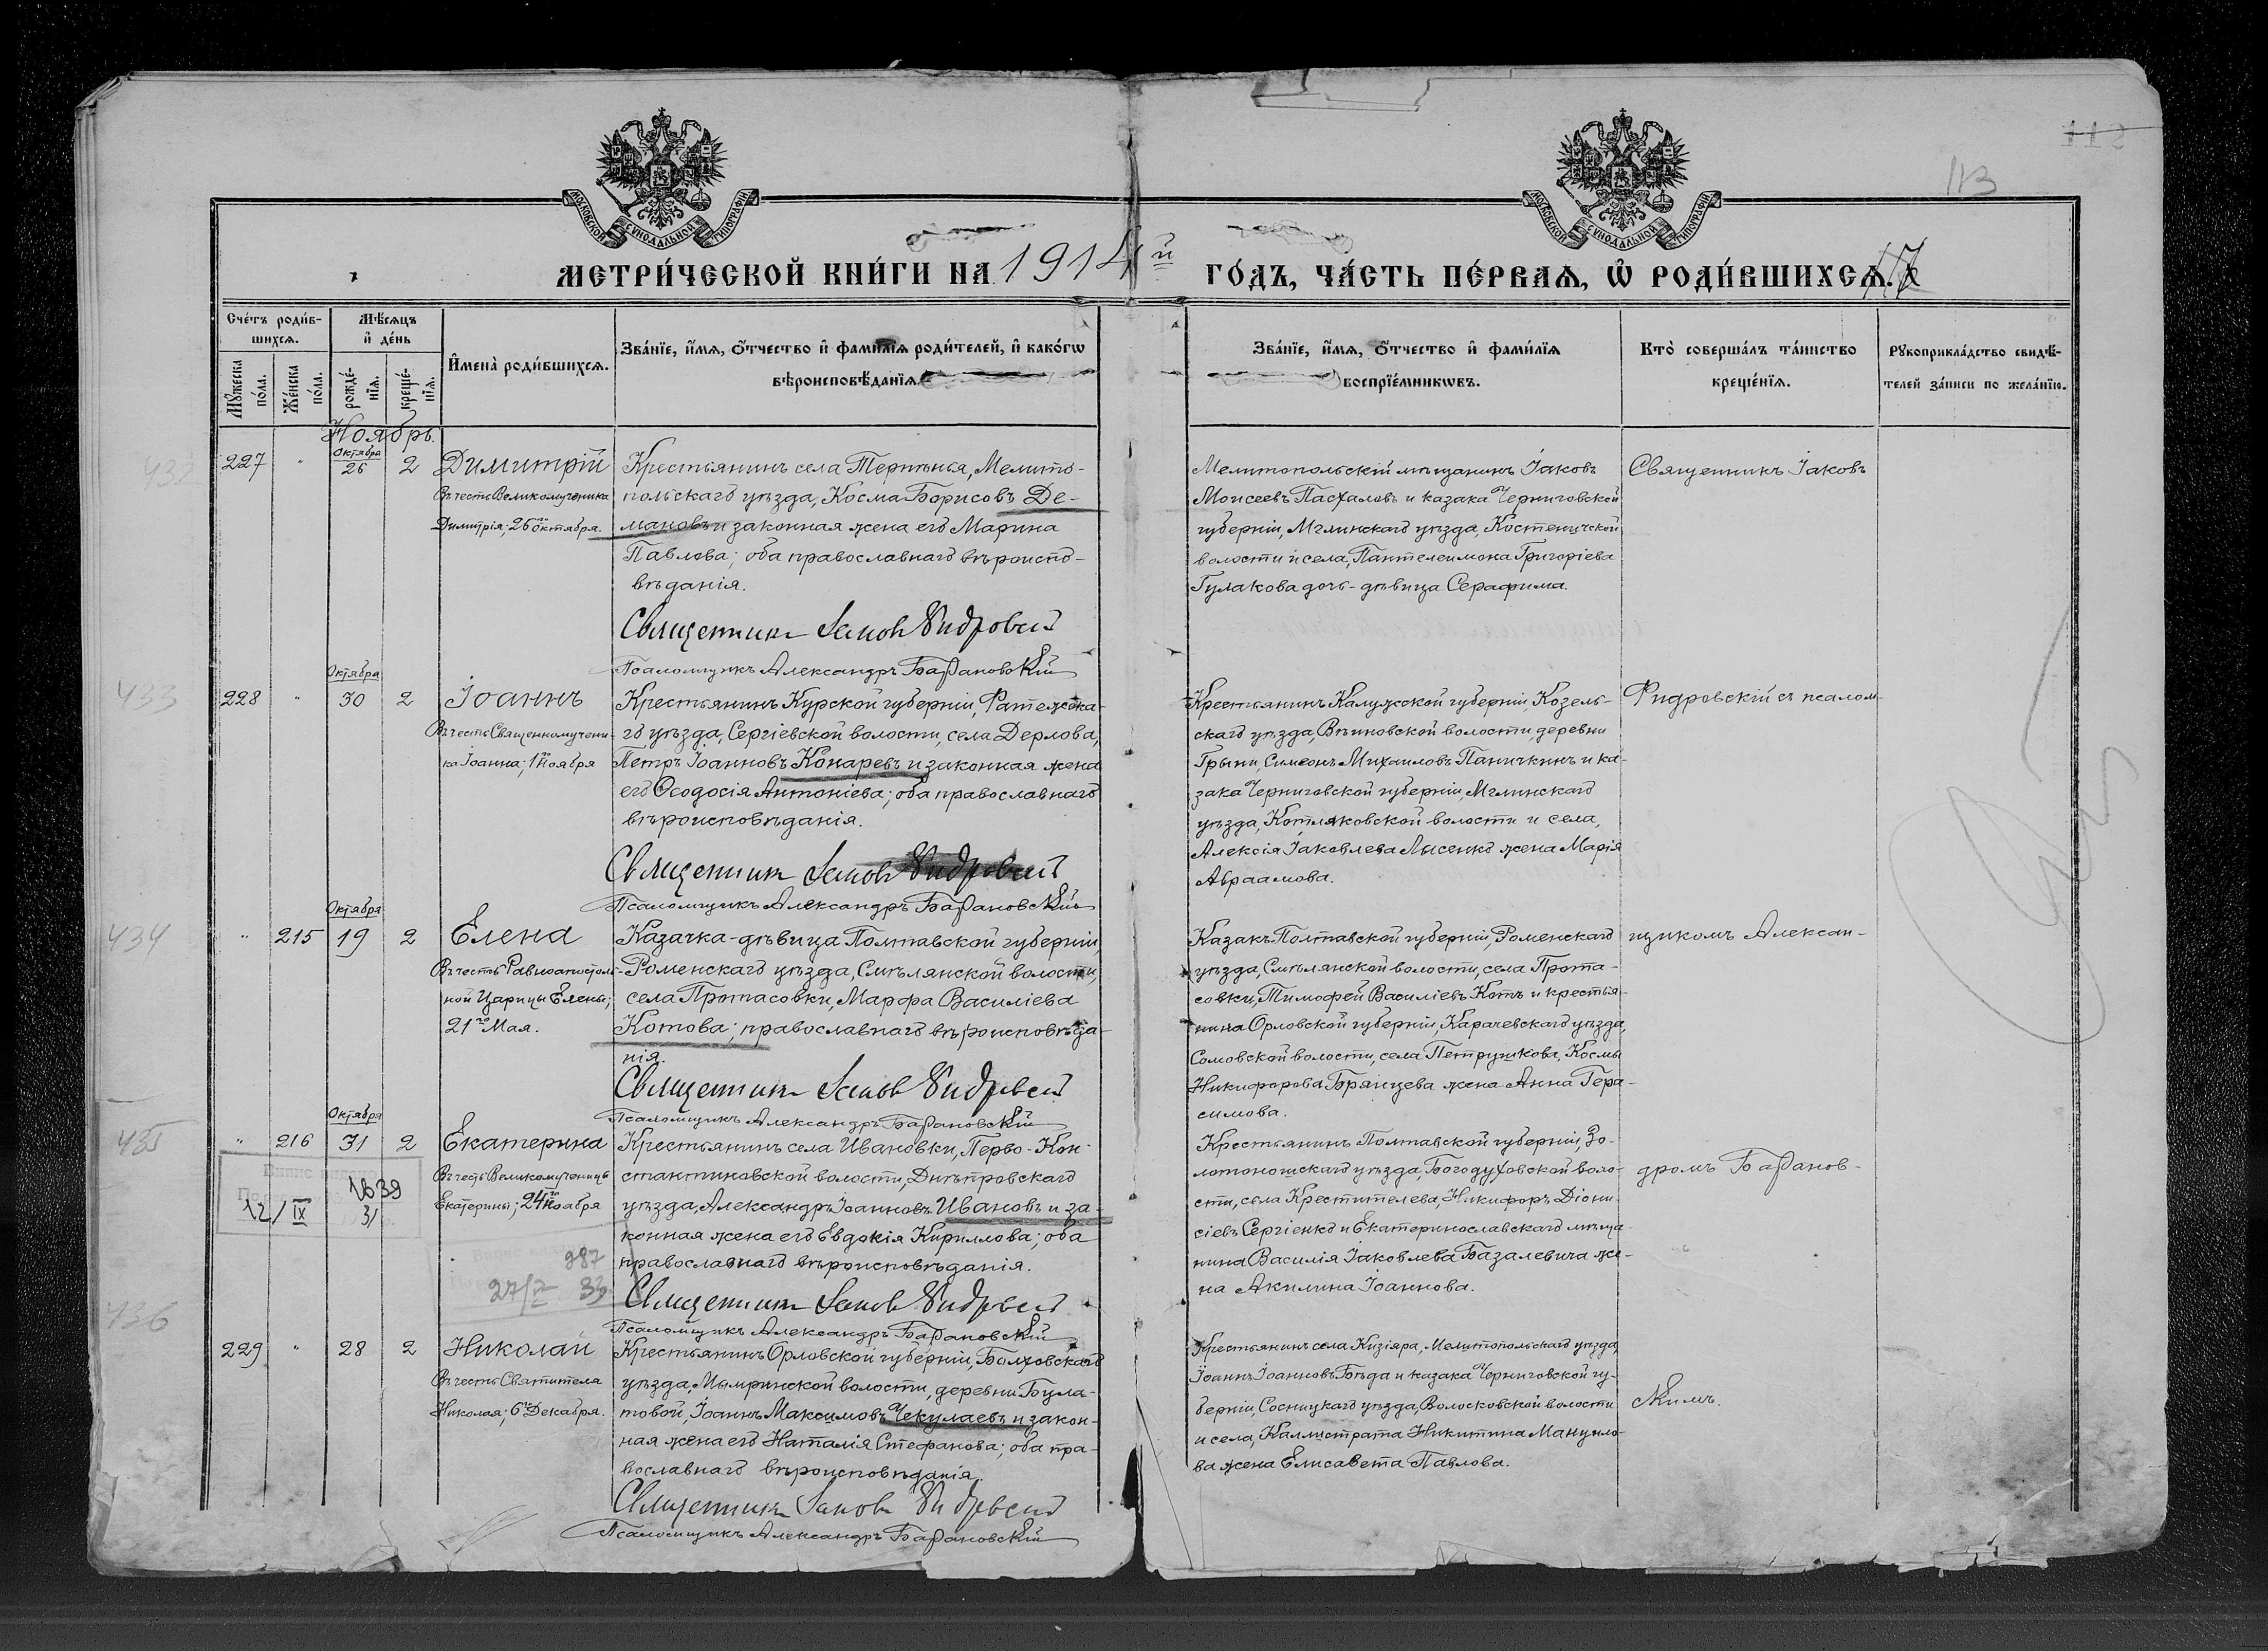 МОСКОВСКОЙ СѴНОДАЛЬНОЙ ТИПОГРАФІИ
МОСКОВСКОЙ СѴНОДАЛЬНОЙ ТИПОГРАФІИ
112
113
МЕТРИ́ЧЕСКОЙ КНИ́ГИ НА 1914й ГО́ДЪ, ЧА́СТЬ ПЕ́РВАѦ, Ѽ РОДИ́ВШИХСѦ.
117
Сче́тъ роди́в-
шихсѧ.
Мꙋ́жеска по́ла.
Же́нска по́ла.
Мѣ́сѧцъ
и҆ де́нь
рожде́-
нїѧ.
креще́-
нїѧ.
И҆мена̀ роди́вшихсѧ.
Зва́нїе, и҆́мѧ, ѻ҆́тчество и҆ фами́лїѧ роди́телей, и҆ како́гѡ
вѣроисповѣ́данїѧ.
Зва́нїе, и҆́мѧ, ѻ҆́тчество и҆ фами́лїѧ
воспрїе́мникѡвъ.
Кто̀ соверша́лъ та́инство
креще́нїѧ.
Рꙋкоприкла́дство свидѣ́-
телей за́писи по жела́нїю.
Ноябрь.
432
227 " Октября 26 2
Димитрій
Въ честь Великомученика
Димитрія; 26го Октября.
Крестьянинъ села Терпѣнья, Мелито-
польскаго уѣзда, Косма Борисовъ Де-
мановъ и законная жена его Марина
Павлова; оба православнаго вѣроиспо-
вѣданія.
Священникъ Іаковъ Фидровскій
Псаломщикъ Александръ Барановскій
Мелитопольскій мѣщанинъ Іаковъ
Моисеевъ Пасхаловъ и казака Черниговской
губерніи, Мглинскаго уѣзда, Костеничской
волости и села, Пантелеимона Григоріева
Гулакова дочь-дѣвица Серафима.
Священникъ Іаковъ
433
228 " Октября 30 2
Іоаннъ
Въ честь Священномучени-
ка Іоанна; 1го Ноября
Крестьянинъ Курской губерніи, Фатежска-
го уѣзда, Сергіевской волости, села Дерлова,
Петръ Іоанновъ Конаревъ и законная жена
его Ѳеодосія Антоніева; оба православнаго
вѣроисповѣданія.
Священникъ Іаковъ Фидровскій
Псаломщикъ Александръ Барановскій
Крестьянинъ Калужской губерніи, Козель-
скаго уѣзда, Вѣиновской волости, деревни
Грыни, Симеонъ Михаиловъ Паничкинъ и ка-
зака Черниговской губерніи, Мглинскаго
уѣзда, Котляковской волости и села,
Алексія Іаковлева Лысенко жена Марія
Авраамова.
Фидровскій съ псалом-
434
" 215 Октября 19 2
Елена
Въ честь Равноапостоль-
ной Царицы Елены;
21го Мая.
Казачка-дѣвица Полтавской губерніи,
Роменскаго уѣзда, Смѣлянской волости,
села Протасовки, Марфа Василіева
Котова; православнаго вѣроисповѣда-
нія.
Священникъ Іаковъ Фидровскій
Псаломщикъ Александръ Барановскій
Казакъ Полтавской губерніи, Роменскаго
уѣзда, Смѣлянской волости, села Прота-
совки, Тимофей Василіевъ Котъ и крестья-
нина Орловской губерніи, Карачевскаго уѣзда,
Сомовской волости, села Петрушкова, Космы
Никифорова Брянцева жена Анна Гера-
симова.
щикомъ Алексан-
435
" 216 Октября 31 2
Екатерина
Въ честь Великомученицы
Екатерины; 24го Ноября
1639
12/IX 31
987
27/V 33
Крестьянинъ села Ивановки, Перво-Кон-
стантиновской волости, Днѣпровскаго
уѣзда, Александръ Іоанновъ Ивановъ и за-
конная жена его Евдокія Кириллова; оба
православнаго вѣроисповѣданія.
Священникъ Іаковъ Фидровскій
Псаломщикъ Александръ Барановскій
Крестьянинъ Полтавской губерніи, Зо-
лотоношскаго уѣзда, Богодуховской воло-
сти, села Крестителева, Никифоръ Діони-
сіевъ Сергіенко и Екатеринославскаго мѣща-
нина Василія Іаковлева Базалевича же-
на Акилина Іоаннова.
дромъ Баранов-
436
229 " 28 2
Николай
Въ честь Святителя
Николая; 6го Декабря.
Крестьянинъ Орловской губерніи, Болховскаго
уѣзда, Мымринской волости, деревни Була-
товой, Іоаннъ Максимовъ Чекулаевъ и закон-
ная жена его Наталія Стефанова; оба пра-
вославнаго вѣроисповѣданія.
Священникъ Іаковъ Фидровскій
Псаломщикъ Александръ Барановскій
Крестьянинъ села Кизіяра, Мелитопольскаго уѣзда,
Іоаннъ Іоанновъ Бѣда и казака Черниговской гу-
берніи, Сосницкаго уѣзда, Волосковской волости
и села, Каллистрата Никитина Мануило-
ва жена Елисавета Павлова.
скимъ.